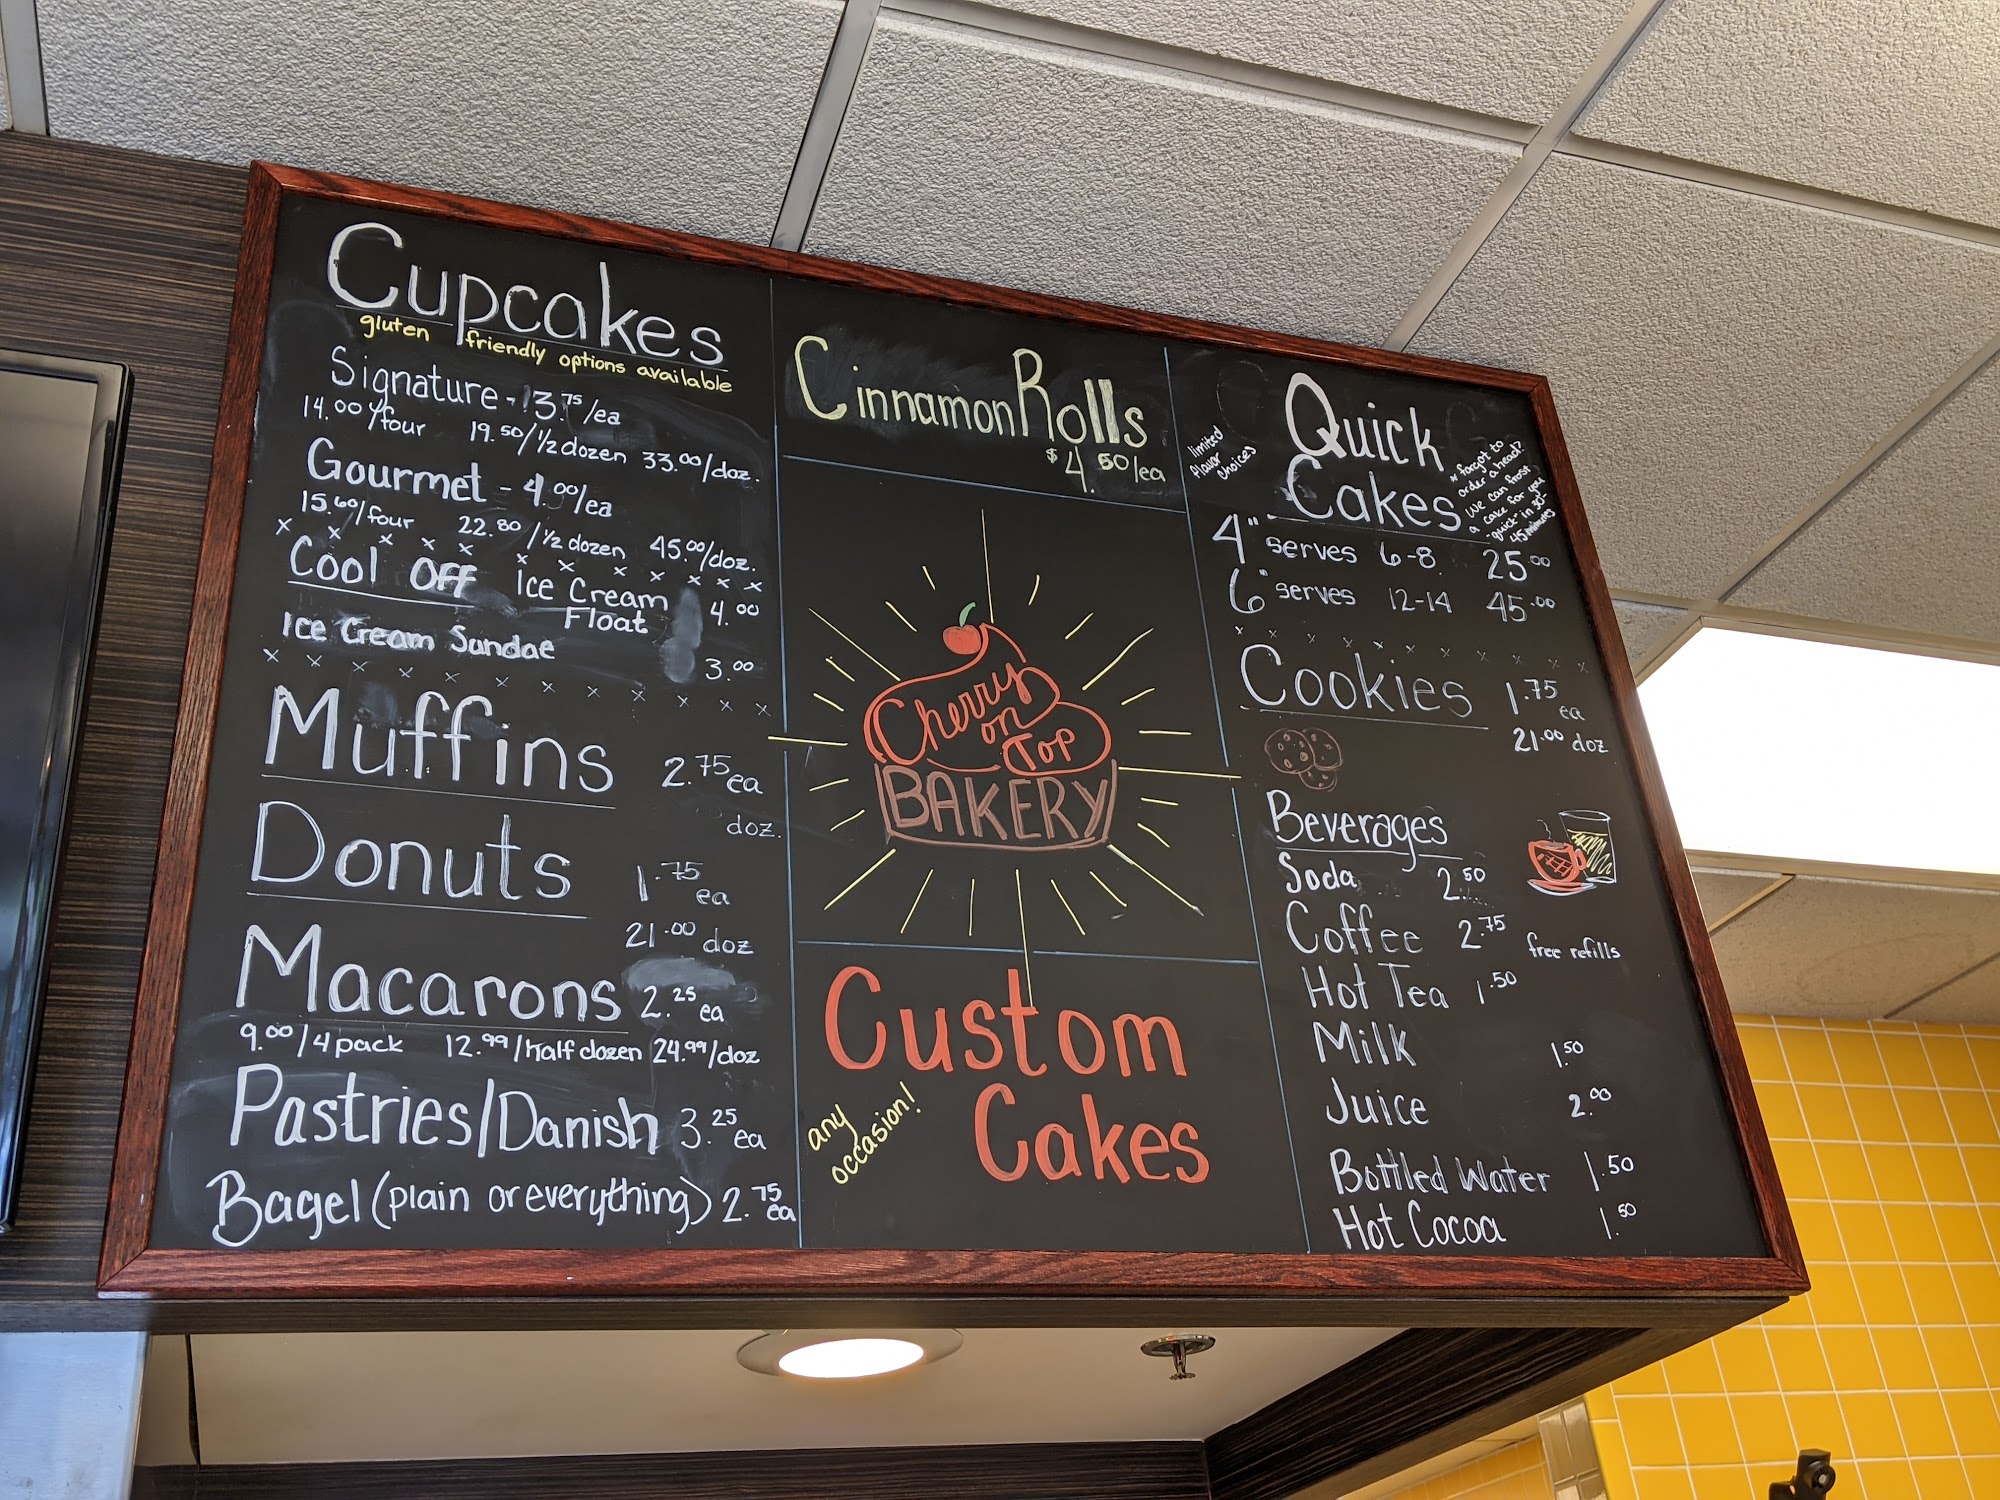 Cupcakes
gluten friendly options available
Signature - 3.75/ea
14.00/four 19.50/½ dozen 33.00/doz.
Gourmet - 4.00/ea
15.60/four 22.80/½ dozen 45.00/doz.
x x x x x x x x x x x x
Cool OFF Ice Cream Float 4.00
Ice Cream Sundae 3.00
x x x x x x x x x x x x
Muffins 2.75 ea
doz.
Donuts 1.75 ea
21.00 doz
Macarons 2.25 ea
9.00/4 pack 12.99/half dozen 24.99/doz
Pastries/Danish 3.25 ea
Bagel (plain or everything) 2.75 ea
Cinnamon Rolls
$4.50/ea
Cherry
on
Top
BAKERY
Custom
Cakes
any
occasion!
Quick
Cakes
limited
flavor
choices
* forgot to
order ahead?
We can frost
a cake for you
"quick" in 30-
45 minutes
4" serves 6-8 25.00
6" serves 12-14 45.00
x x x x x x x x x x x x
Cookies 1.75 ea
21.00 doz
Beverages
Soda 2.50
Coffee 2.75 free refills
Hot Tea 1.50
Milk 1.50
Juice 2.00
Bottled Water 1.50
Hot Cocoa 1.50